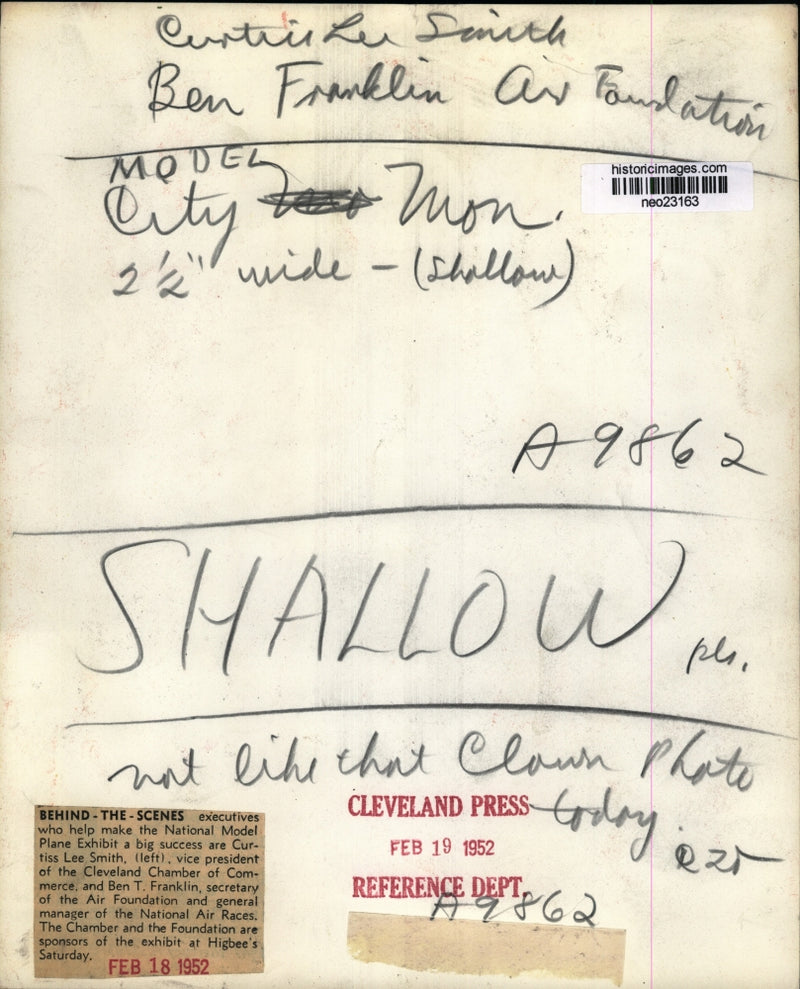 Curtiss Lee Smith
Ben Franklin Air Foundation
historicimages.com
neo23163
MODEL
City Mon.
2 1/2" wide - (shallow)
A9862
SHALLOW pls.
not like that Clown Photo
today.
CLEVELAND PRESS
FEB 19 1952
REFERENCE DEPT.
A9862
BEHIND-THE-SCENES executives
who help make the National Model
Plane Exhibit a big success are Cur-
tiss Lee Smith, (left), vice president
of the Cleveland Chamber of Com-
merce, and Ben T. Franklin, secretary
of the Air Foundation and general
manager of the National Air Races.
The Chamber and the Foundation are
sponsors of the exhibit at Higbee's
Saturday.
FEB 18 1952